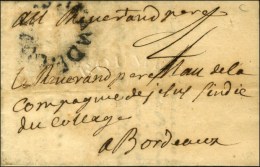 au Reverand pere
4
le Reverand pere de la
Compagnie de jesus sindic
du Collage
a Bordeaux